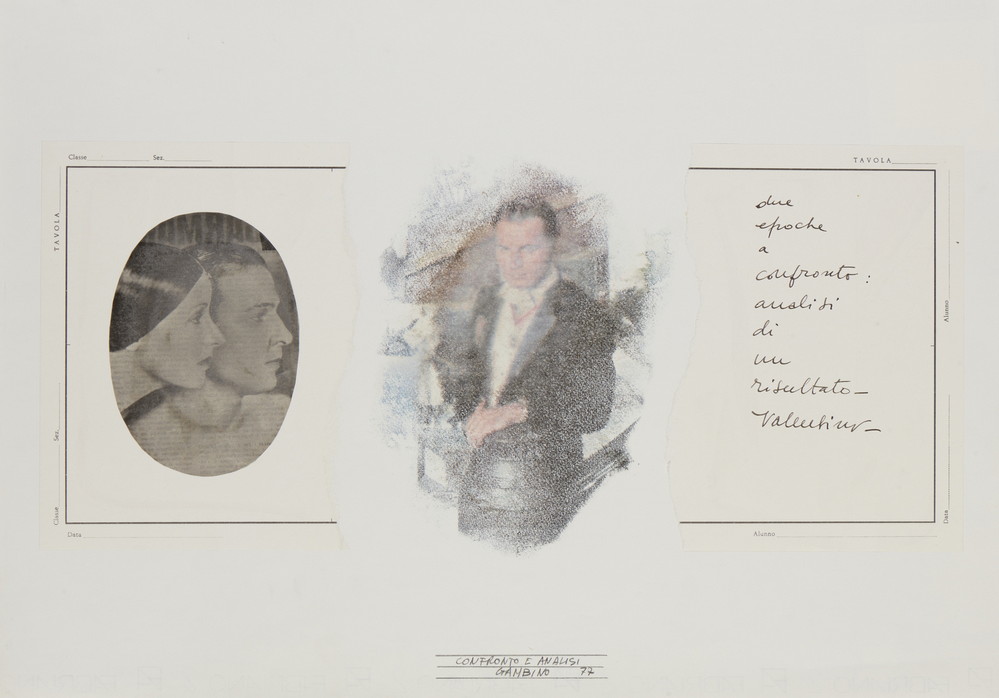 Classe Sez.
TAVOLA
Sez.
Classe
Data
TAVOLA
due
epoche
a
confronto:
analisi
di
un
risultato-
Valentino-
Alunno
Data
Alunno
CONFRONTO E ANALISI
GAMBINO 77